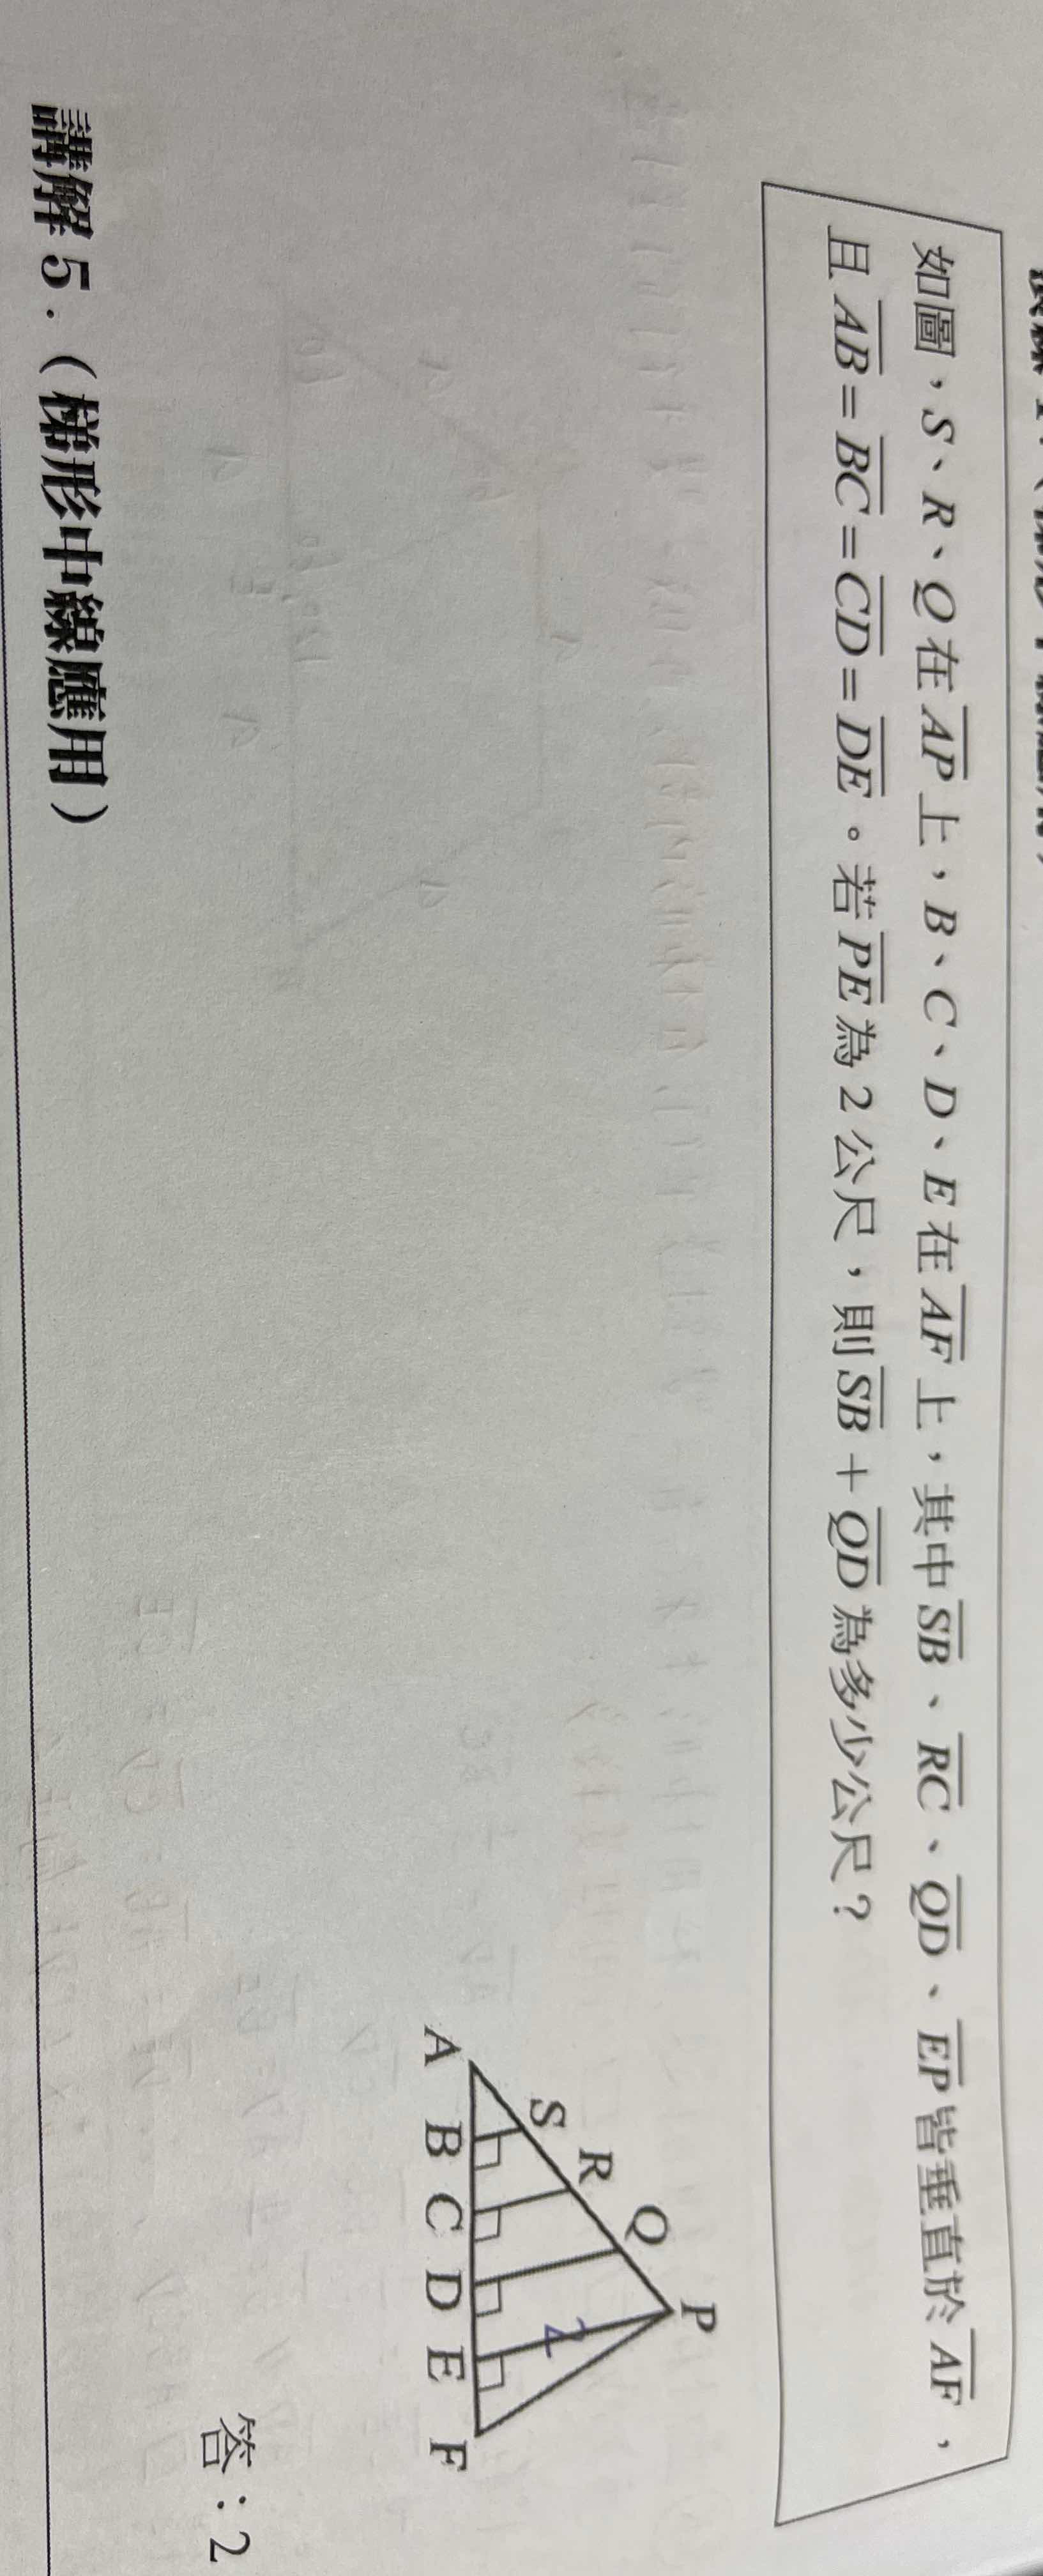 如圖，S、R、Q在AP上，B、C、D、E在AF上，其中SB、RC、QD、EP皆垂直於AF，
且AB=BC=CD=DE。若PE為2公尺，則SB+QD為多少公尺？
P
Q
R
S
2
A B C D E F
答：2
講解5.（梯形中線應用）